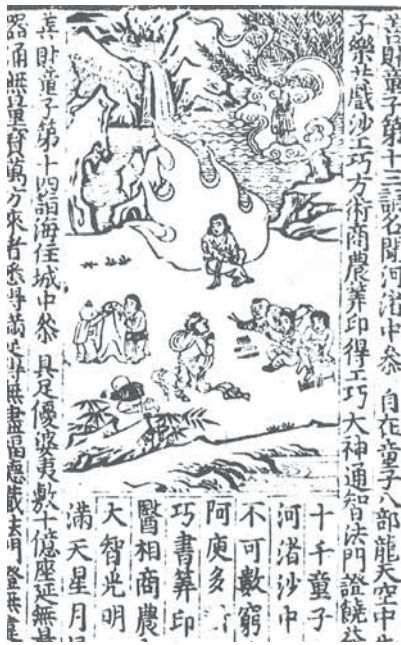 善財童子第十三詣名聞河渚中叅 自在童子八部龍天空中
子樂共戲沙工巧方術商農筭印得工巧大神通智法門證饒益
十千童子
河渚沙中
不可數窮
阿庾多
巧書筭印
醫相商農
大智光明
滿天星月
善財童子第十四詣海住城中叅 具足優婆夷敷十億座延無量
器涌無量寶萬方來者悉得滿足得無盡福德藏法門 證無盡